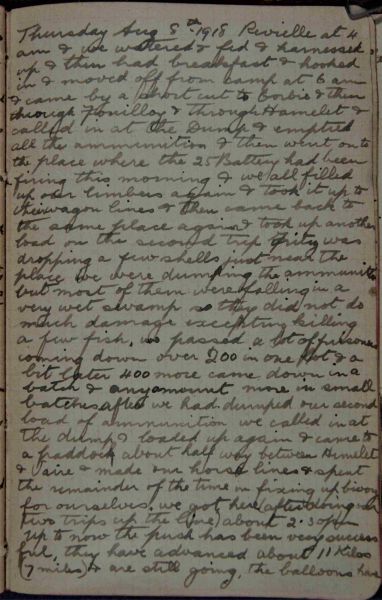 Thursday Aug 8th 1918 Revielle at 4
am & we watered & fed & harnessed
up & then had breakfast & hooked
in & moved off from camp at 6 am
& came by a short cut to Corbie & then
through Fouilloy & through Hamelet &
called in at the Dump & emptied
all the ammunition & then went on to
the place where the 25 Battery had been
firing this morning & we all filled
up our limbers again & took it up to
their wagon lines & then came back to
the same place again & took up another
load on the second trip fritz was
dropping a few shells just near the
place we were dumping the ammunition
but most of them were falling in a
very wet swamp so they did not do
much damage excepting killing
a few fish, we passed a lot of prisoners
coming down over 200 in one lot & a
bit later 400 more came down in a
batch & any amount more in small
batches after we had dumped our second
load of ammunition we called in at
the dump & loaded up again & came to
a paddock about half way between Hamlet
& Vaire & made our horse lines & spent
the remainder of the time in fixing up bivvys
for ourselves, we got here (after doing
two trips up the line) about 2.30 pm
Up to now the push has been very success
ful, they have advanced about 11 Kilos
(7 miles) & are still going, the balloons have